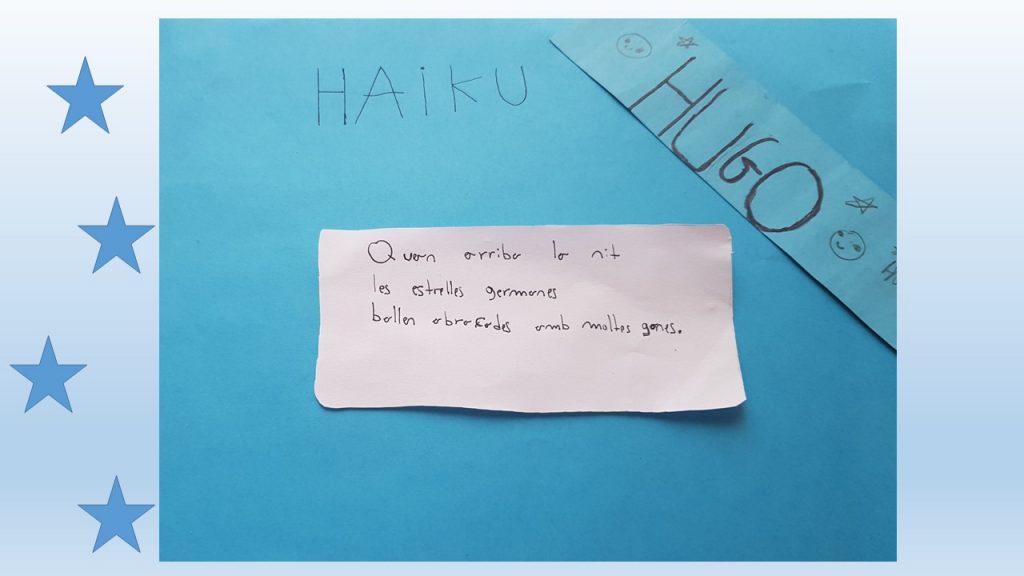 HAiKU
HUGO
Quan arriba la nit
les estrelles germanes
ballen abraçades amb moltes ganes.